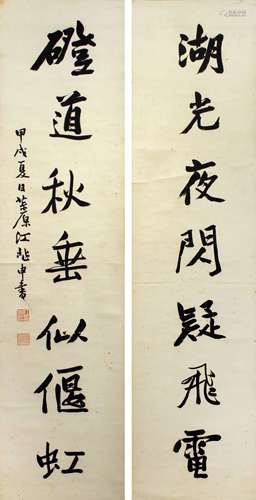 湖光夜閃疑飛電
磴道秋垂似偃虹
甲戌夏日
江兆申書